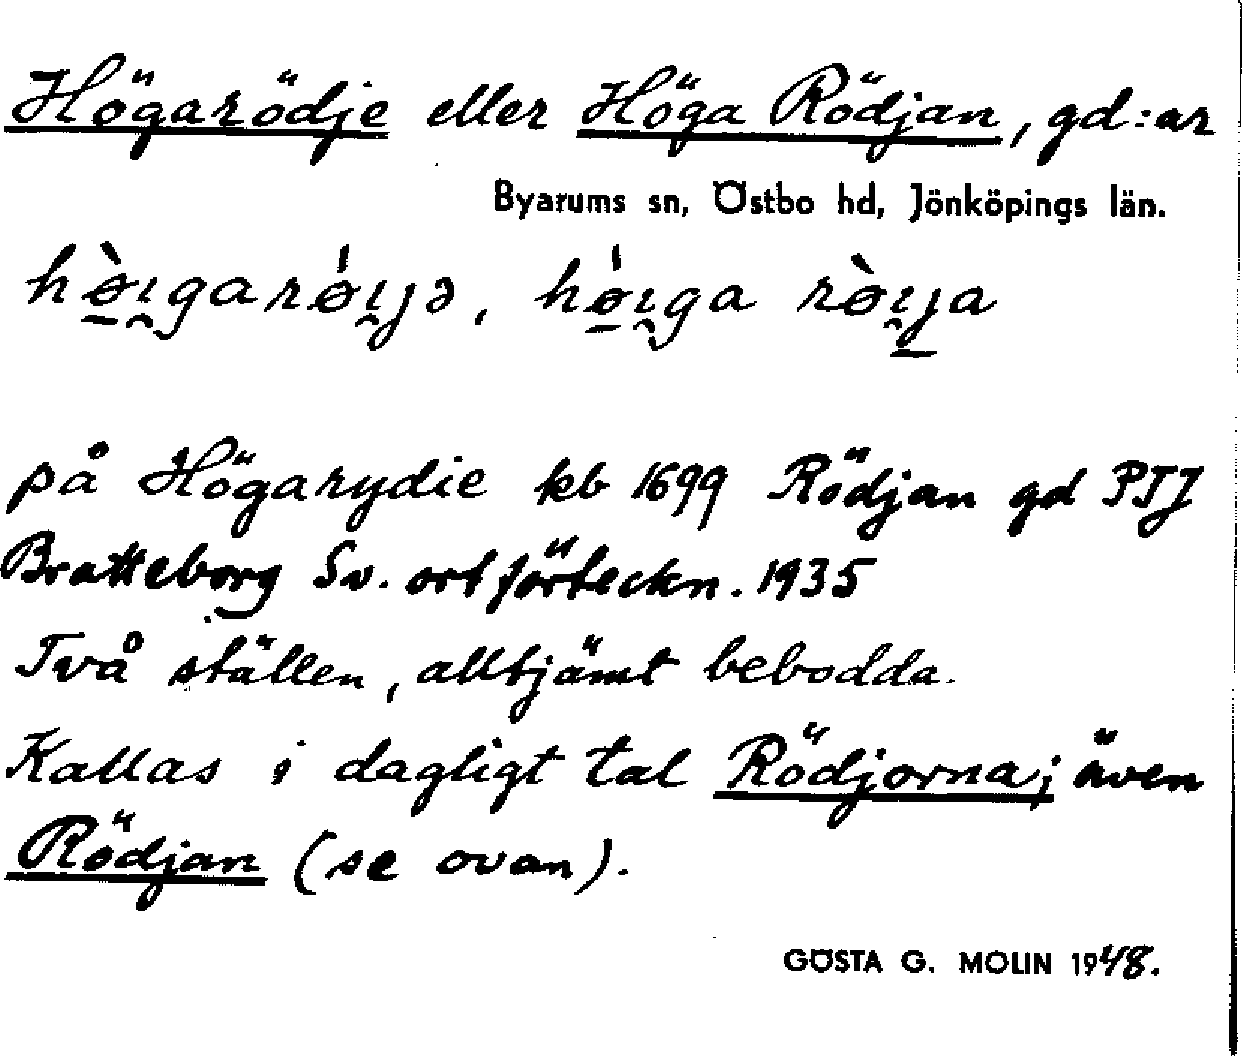 Högarödje eller Höga Rödjan, gd:ar
Byarums sn, Östbo hd, Jönköpings län.
hø̀ɪgarǿɪjə, hǿɪga rø̀ɪja
på Högarydie kb 1699 Rödjan gd PJJ
Bratteborg Sv. ortförteckn. 1935
Två ställen, alltjämt bebodda.
Kallas i dagligt tal Rödjorna; även
Rödjan (se ovan).
GÖSTA G. MOLIN 1948.